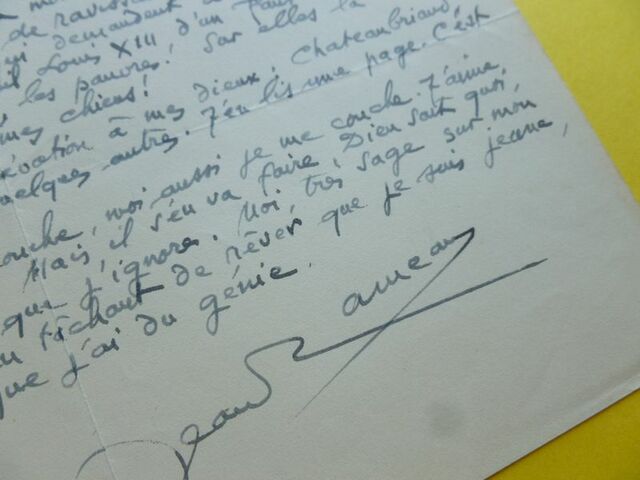 de ravissan
demandent à
Louis XIII d'un
les pauvres! Sur elles la
mes chiens!
évocation à mes dieux: Chateaubriand,
quelques autres. J'en lis une page. C'est
couche, moi aussi je me couche. J'aime
Mais, il s'en va faire, Dieu sait quoi,
que j'ignore. Moi, très sage sur mon
tâchant de rêver que je suis jeune,
que j'ai du génie.
Jean Rameau